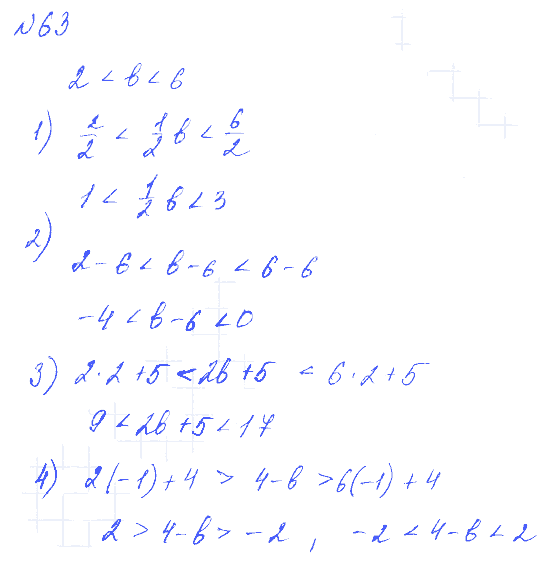 №63
2 < b < 6
1) 2/2 < 1/2 b < 6/2
1 < 1/2 b < 3
2)
2 - 6 < b - 6 < 6 - 6
-4 < b - 6 < 0
3) 2·2 + 5 < 2b + 5 < 6·2 + 5
9 < 2b + 5 < 17
4) 2(-1) + 4 > 4 - b > 6(-1) + 4
2 > 4 - b > -2, -2 < 4 - b < 2